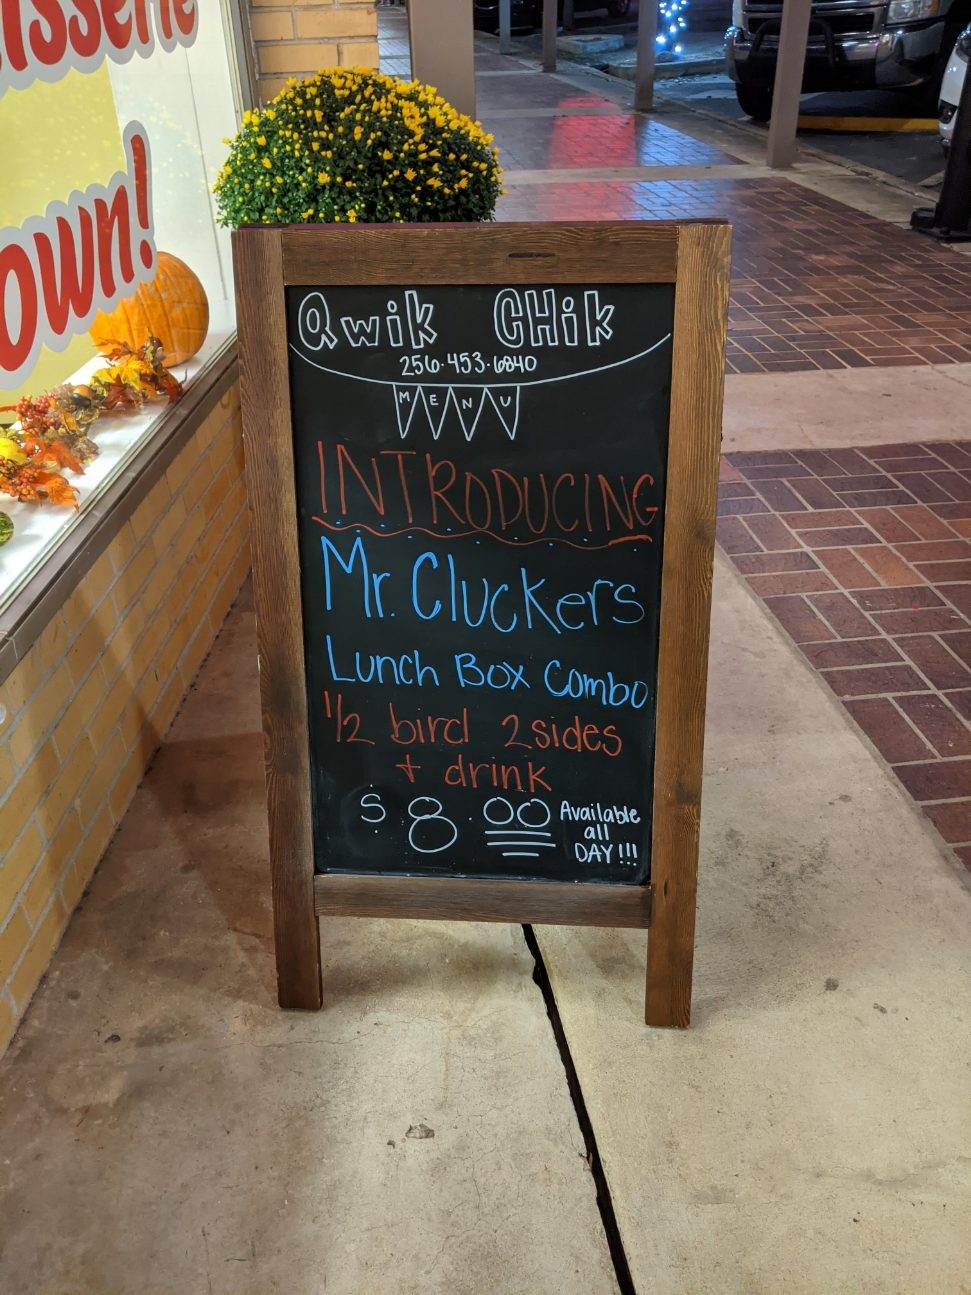 own!
Qwik CHik
256·453·6840
MENU
INTRODUCING
Mr. Cluckers
Lunch Box Combo
1/2 bird 2 sides
+ drink
$8.00
Available
all
DAY!!!